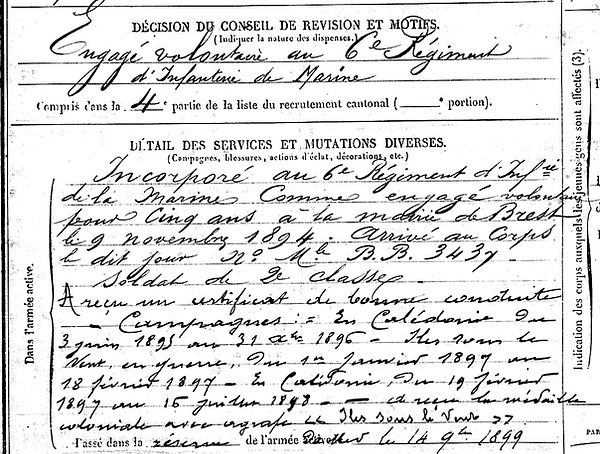 DÉCISION DU CONSEIL DE REVISION ET MOTIFS.
(Indiquer la nature des dispenses.)
Engagé volontaire au 6e Régiment
d'Infanterie de Marine
Compris dans la 4e partie de la liste du recrutement cantonal (       e portion).
DÉTAIL DES SERVICES ET MUTATIONS DIVERSES.
(Campagnes, blessures, actions d'éclat, décorations, etc.)
Incorporé au 6e Régiment d'Infrie
de la Marine Comme engagé volontaire
pour Cinq ans à la mairie de Brest
le 9 novembre 1894. Arrivé au Corps
le dit jour No Mle B.B. 3437
Soldat de 2e classe
A reçu un certificat de bonne conduite
- Campagnes := En Calédonie du
3 juin 1895 au 31 Xbre 1896 - Iles sous le
Vent, en guerre, du 1er Janvier 1897 au
18 février 1897 - En Calédonie, du 19 février
1897 au 15 juillet 1898 - - a reçu la médaille
coloniale avec agrafe << Iles sous le Vent >>
Passé dans la réserve de l'armée active le 14 9bre 1899
Dans l'armée active.
Indication des corps auxquels les jeunes gens sont affectés (3).
PAR